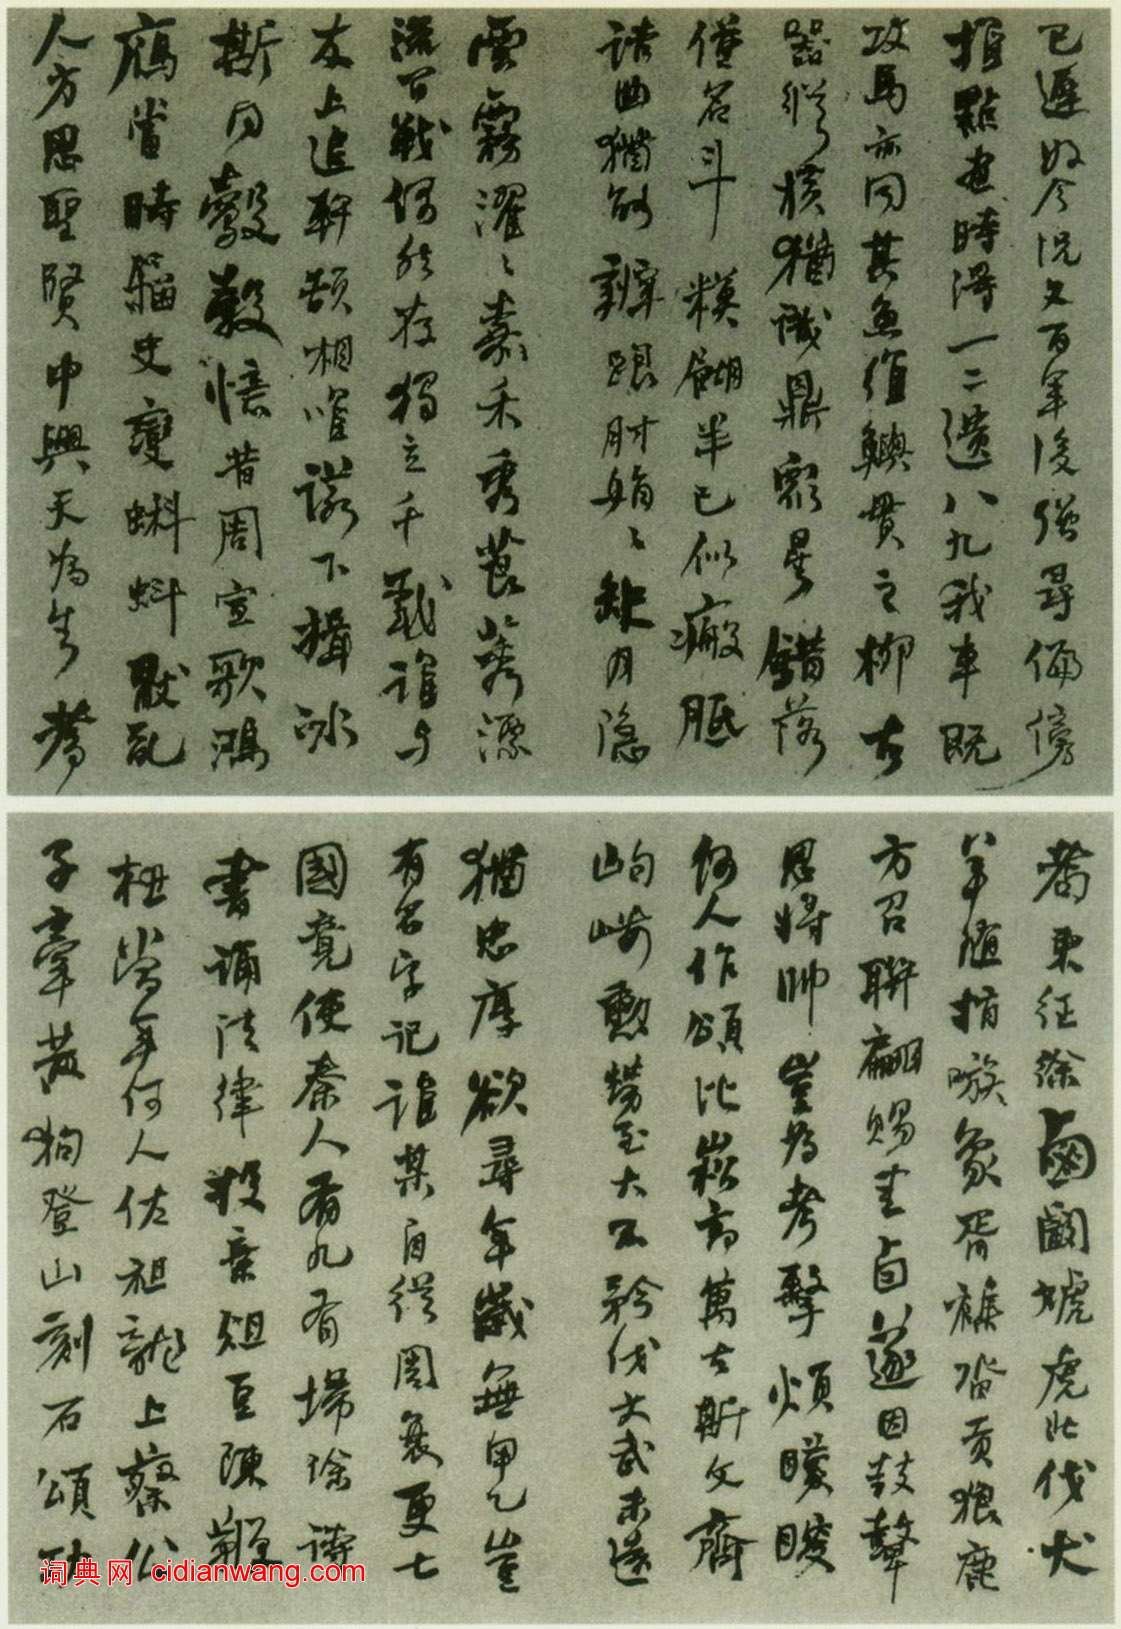 已遲如今況又百年後強尋偏傍
推點畫時得一二遺八九我車既
攻馬亦同其魚維鱮貫之柳古
器縱橫猶識鼎衆星錯落
僅名斗模餬半已似瘢胝
詰曲猶能辨跟肘娟〻缺月隱
雲霧濯〻嘉禾秀莨莠漂
流百戰偶然存獨立千載誰與
友上追軒頡相唯諾下揖冰
斯同鷇㝅憶昔周宣歌鴻
鴈當時籀史變蝌蚪厭亂
人方思聖賢中興天為生耆
耇東征徐虜闞虓虎北伐犬
戎隨指嗾象胥雜沓貢狼鹿
方召聯翩賜圭卣遂因鼓鼙
思將帥豈為考擊煩矇瞍
何人作頌比嵩高萬古斯文齊
岣嶁勳勞至大不矜伐文武未遠
猶忠厚欲尋年歲無甲乙豈
有名字記誰某自從周衰更七
國竟使秦人有九有掃除詩
書誦法律投棄俎豆陳鞭
杻當年何人佐祖龍上蔡公
子牽黃狗登山刻石頌功
词典网 cidianwang.com